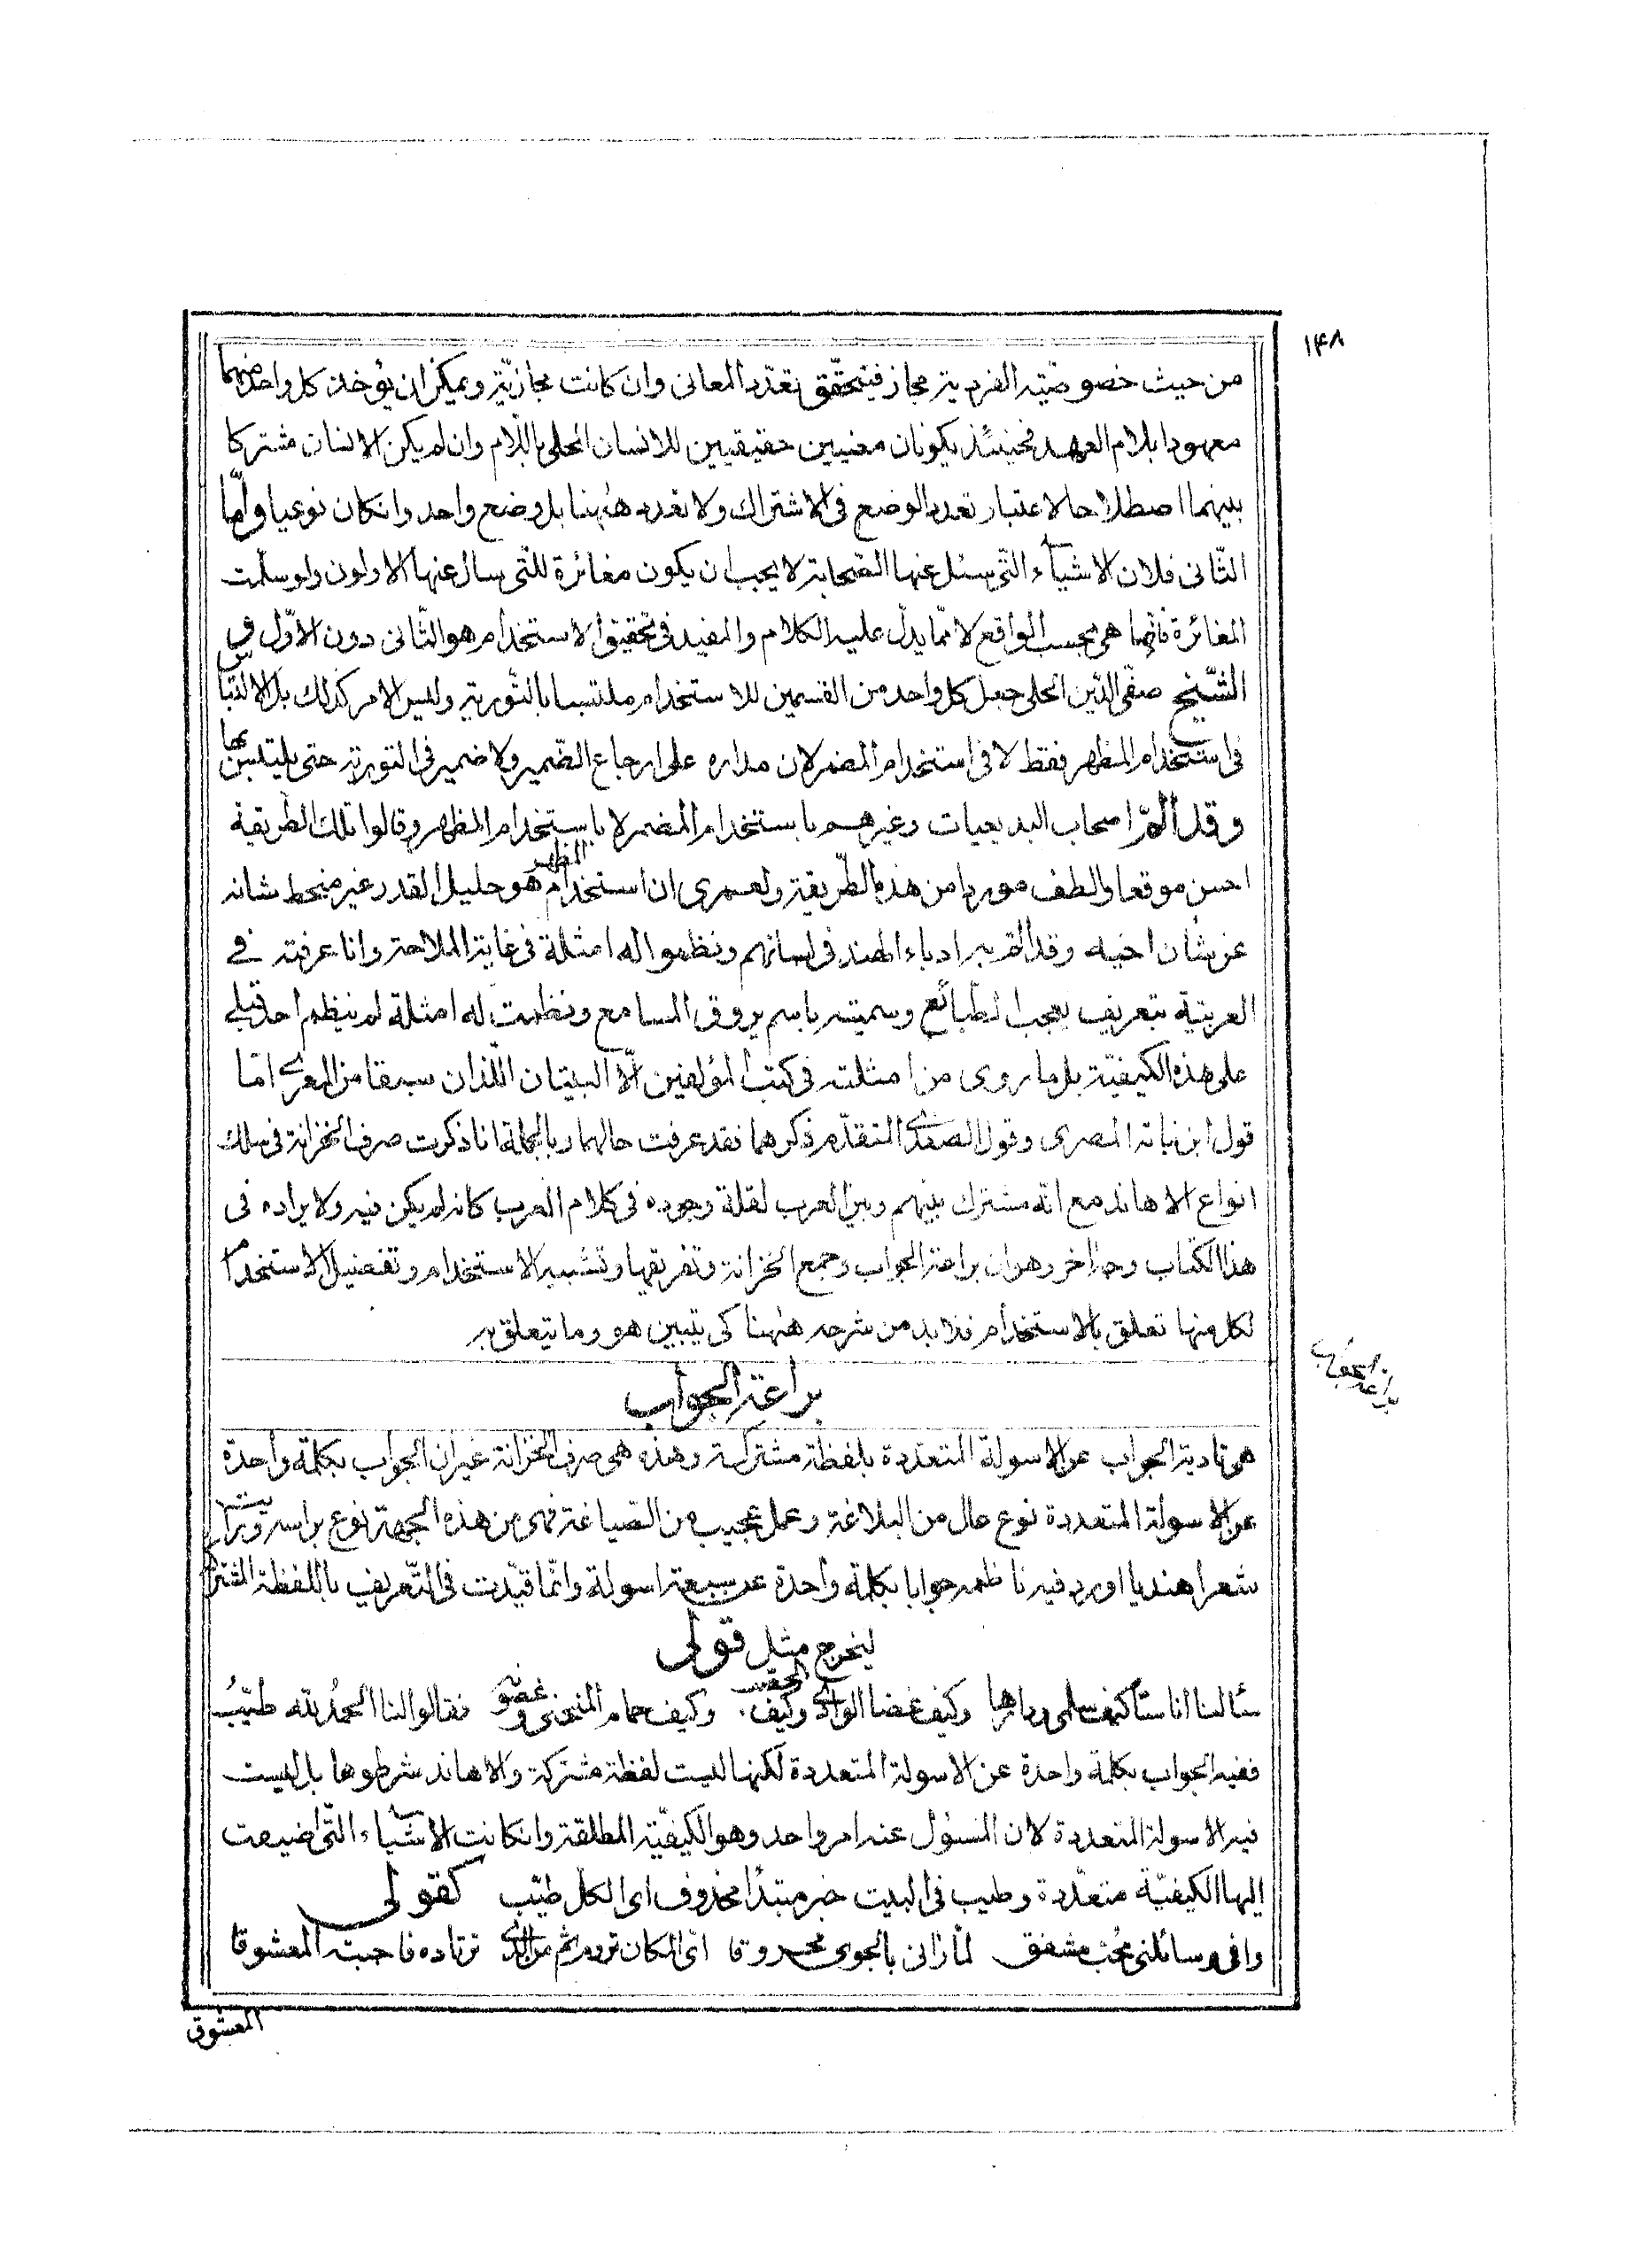 ١٤٨
من حيث خصوصية الفردية مجاز فيتحقق تعدد المعانى وان كانت مجازية ويمكن ان يؤخذ كل واحد منهما
معهودا بلام العهد فحينئذ يكونان معنيين حقيقيين للانسان المحلى باللام وان لم يكن الانسان مشتركا
بينهما اصطلاحا لاعتبار تعدد الوضع فى الاشتراك ولا تعدد ههنا بل وضع واحد وانكان نوعيا وامّا
الثّانى فلان الاشياء التى سئل عنها الصّحابة لا يجب ان يكون مغائرة للتى سال عنها الاولون ولو سلمت
المغائرة فانّما هى بحسب الواقع لا ممّا يدلّ عليه الكلام والمفيد فى تحقيق الاستخدام هو الثّانى دون الاوّل و
الشّيخ صفى الدّين الحلى جعل كل واحد من القسمين للاستخدام ملتبسا بالتّورية وليس الامر كذلك بل الالتباس
فى استخدام المظهر فقط لا فى استخدام المضمر لان مداره على ارجاع الضّمير ولا ضمير فى التورية حتى يلتبس بها
وقد المّ اصحاب البديعيات وغيرهم باستخدام المضمر لا باستخدام المظهر وقالوا تلك الطّريقة
احسن موقعا والطف موردا من هذه الطّريقة ولعمرى ان استخدام المظهر هو جليل القدر غير منحط شانه
عن شان اخيه وقد المّ به ادباء الهند فى لسانهم ونظموا له امثلة فى غاية الملاحة وانا عرفته فے
العربيّة بتعريف يعجب الطّبائع وسميته باسم يروق المسامع ونظمت له امثلة لم ينظم احد قبلے
على هذه الكيفيّة بل ما روى من امثلته فى كتب المؤلفين الّا البيتان اللّذان سبقا من المعرے امّا
قول ابن نباتة المصرى وقول الصفدے المتقدّم ذكرهما فقد عرفت حالهما وبالجملة انا ذكرت صرف الخزانة فى سلك
انواع الاهاند مع انّه مشترك بينهم وبين العرب لقلة وجوده فى كلام العرب كانه لم يكن فيه ولايراده فى
هذا الكتاب وجه اخر وهو ان براعة الجواب وجمع الخزانة وتفريقها وتشبيه الاستخدام وتفضيل الاستخدام
لكل منها تعلق بالاستخدام فلا بد من شرحه ههنا كى يتبين هو وما يتعلق به
براعة الجواب
براعة الجواب
هى تادية الجواب عن الاسولة المتعددة بلفظة مشتركة وهذه هى صرف الخزانة غير ان الجواب بكلمة واحدة
عن الاسولة المتعددة نوع عال من البلاغة وعمل عجيب من الصّياغة فهى من هذه الجهة نوع براسه ورايت
شعرا هنديا اورد فيه ناظمه جوابا بكلمة واحدة عن سبعة اسولة وانّما قيّدت فى التّعريف باللفظة المشتركة
ليخرج مثل قولى
سألنا اناسا كيف سلمى ودارها وكيف غضا الوادے وكيف العقيق وكيف حمام المنحنى وغضونه فقالوا لنا الحمد لله طيّبُ
ففيه الجواب بكلمة واحدة عن الاسولة المتعددة لكنها ليست لفظة مشتركة والاهاند شرطوها بل ليست
فيه الاسولة المتعددة لان المسئول عنه امر واحد وهو الكيفيّة المطلقة وانكانت الاشياء التى اضيفت
اليها الكيفيّة متعدّدة وطيب فى البيت خبر مبتدأ محذوف اى الكل طيّب كقولى
وافى وسائلنى محب مشفق لمّا رانى بالجوى محروقا اىّ المكان تروم ثم من الّذے ترتاده فاجبته المعشوقا
المعشوق